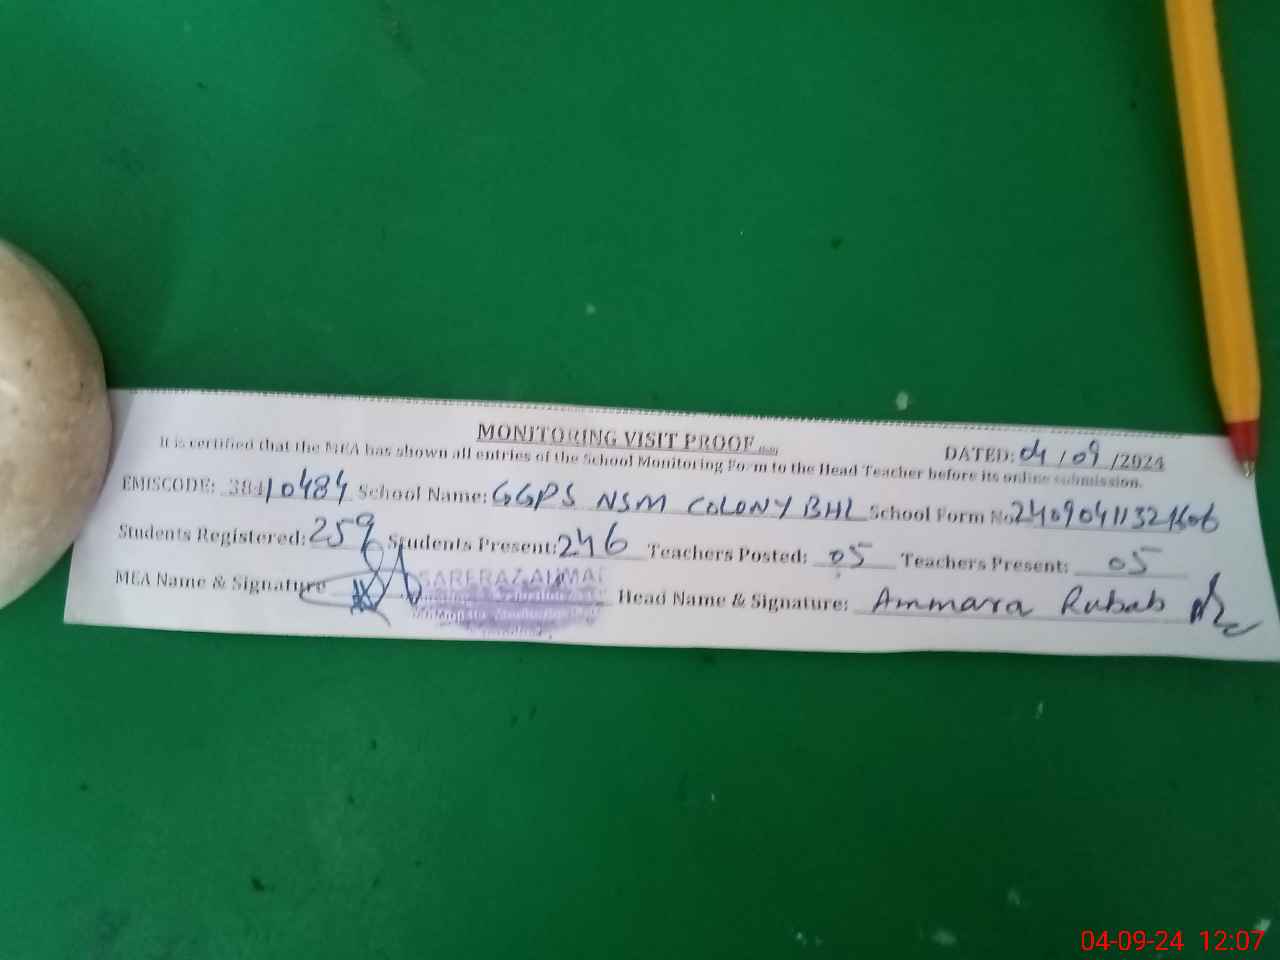 MONITORING VISIT PROOF
DATED: 04/09/2024
It is certified that the MEA has shown all entries of the School Monitoring Form to the Head Teacher before its online submission.
EMISCODE: 38410484 School Name: GGPS NSM COLONY BHL School Form No
Students Registered: 259 Students Present: 246 Teachers Posted: 05 Teachers Present: 05
MEA Name & Signature Head Name & Signature: Ammara Rubab
SARFRAZ AHMAD
04-09-24 12:07